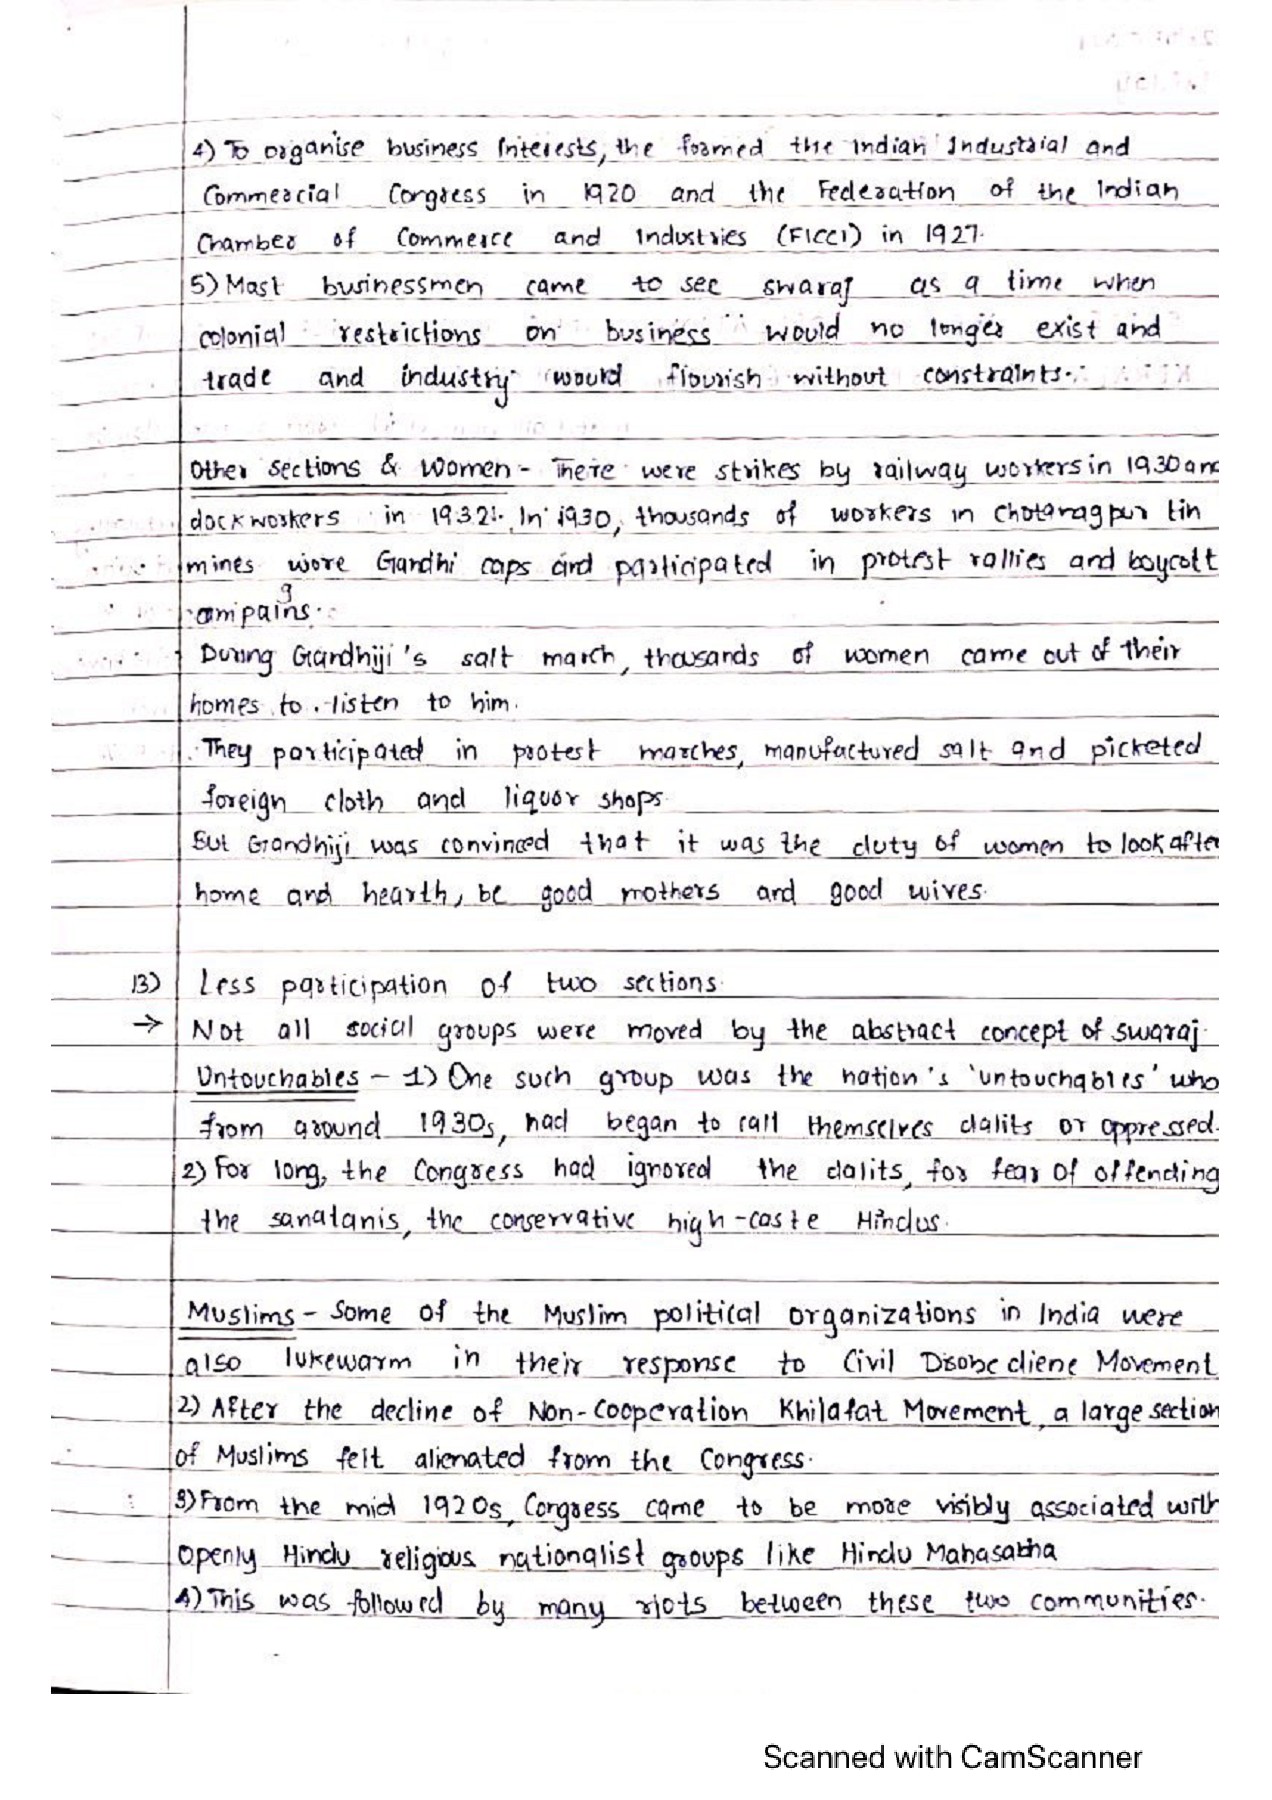 4) To organise business Interests, the formed the Indian Industrial and
Commercial Congress in 1920 and the Federation of the Indian
Chamber of Commerce and Industries (FICCI) in 1927.
5) Most businessmen came to see swaraj as a time when
colonial restrictions on business would no longer exist and
trade and industry would flourish without constraints.
Other sections & Women - There were strikes by railway workers in 1930 and
dockworkers in 1932. In 1930, thousands of workers in chotanagpur tin
mines wore Gandhi caps and participated in protest rallies and boycott
campaigns.
During Gandhiji's salt march, thousands of women came out of their
homes to listen to him.
They participated in protest marches, manufactured salt and picketed
foreign cloth and liquor shops.
But Gandhiji was convinced that it was the duty of women to look after
home and hearth, be good mothers and good wives.
13) Less participation of two sections.
→ Not all social groups were moved by the abstract concept of swaraj.
Untouchables - 1) One such group was the nation's 'untouchables' who
from around 1930s, had began to call themselves dalits or oppressed.
2) For long, the Congress had ignored the dalits, for fear of offending
the sanatanis, the conservative high-caste Hindus.
Muslims - Some of the Muslim political organizations in India were
also lukewarm in their response to Civil Disobediene Movement
2) After the decline of Non-Cooperation Khilafat Movement, a large section
of Muslims felt alienated from the Congress.
3) From the mid 1920s, Congress came to be more visibly associated with
openly Hindu religious nationalist groups like Hindu Mahasabha
4) This was followed by many riots between these two communities.
Scanned with CamScanner